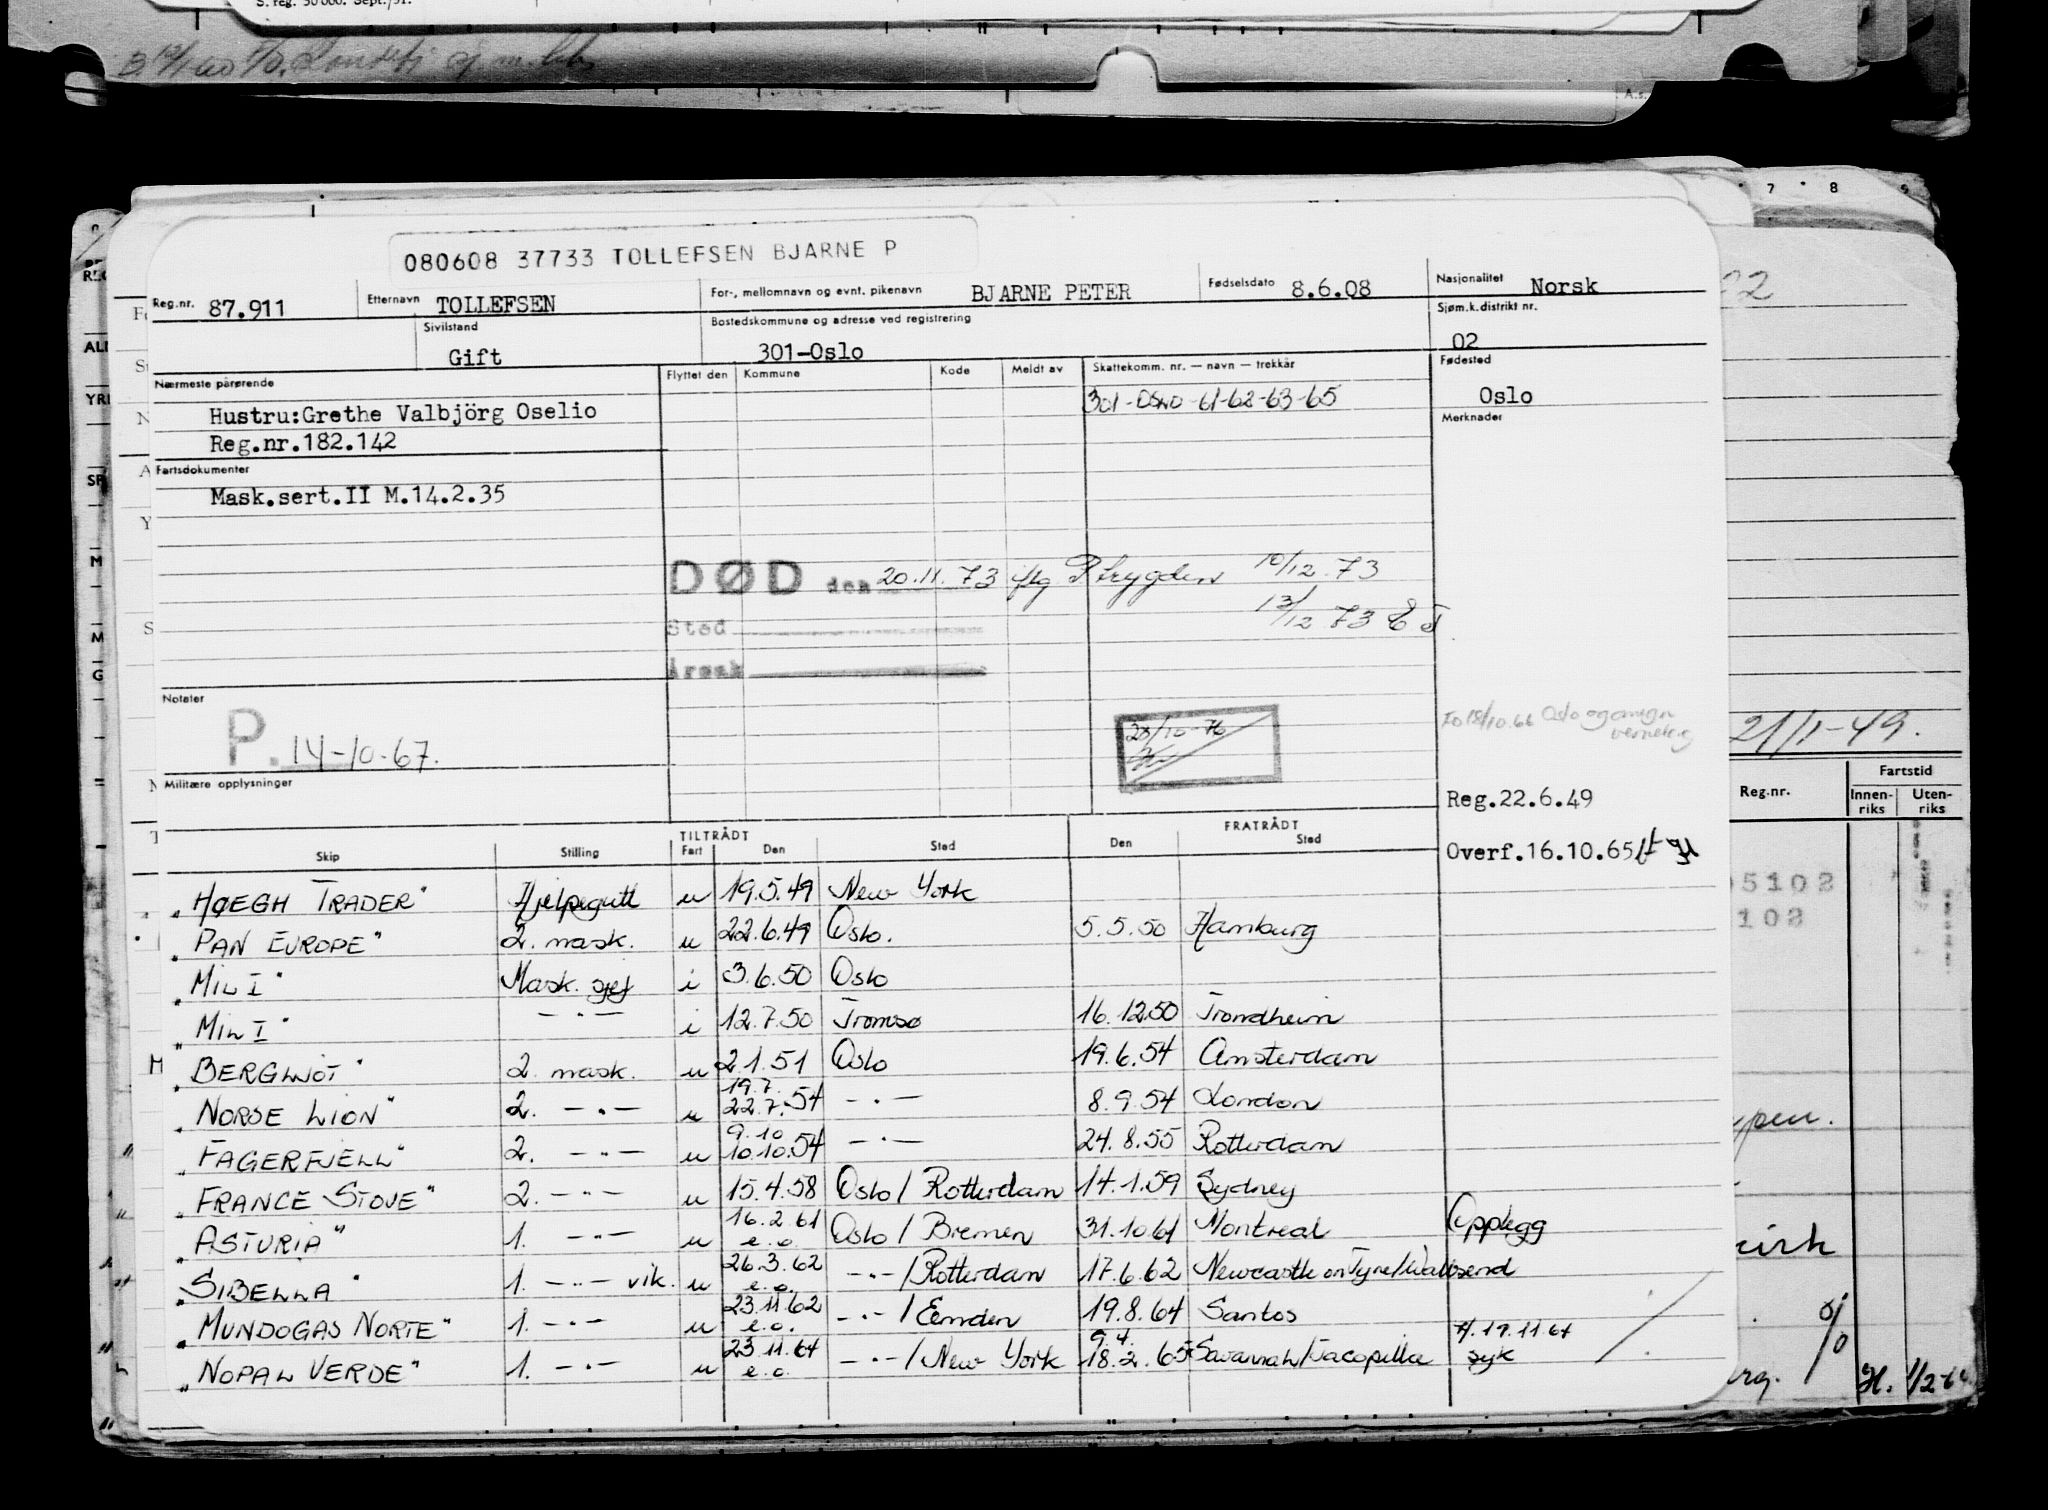 S. reg. 50 000. Sept./51.
A.s.
7 8 9
080608 37733 TOLLEFSEN BJARNE P
Reg.nr. 87.911 Etternavn TOLLEFSEN For-, mellomnavn og evnt. pikenavn BJARNE PETER Fødselsdato 8.6.08 Nasjonalitet Norsk
Sivilstand Gift Bostedskommune og adresse ved registrering 301-Oslo Sjøm.k.distrikt nr. 02
Nærmeste pårørende Flyttet den Kommune Kode Meldt av Skattekomm. nr. — navn — trekkår Fødested
Hustru:Grethe Valbjörg Oselio 301-OSLO-61-62-63-65 Oslo
Reg.nr.182.142 Merknader
Fartsdokumenter
Mask.sert.II M.14.2.35
DØD den 20.11.73 iflg P trygden 10/12.73
13/12 73
Sted
Årsak
Notater
P. 14-10-67.
28/10-76
21/1-49.
Militære opplysninger
Reg.22.6.49
Overf.16.10.65
TILTRÅDT FRATRÅDT
Skip Stilling Fart Den Sted Den Sted
"HØEGH TRADER" Hjelpegutt u 19.5.49 New York
"PAN EUROPE" 2. mask. u 22.6.49 Oslo. 5.5.50 Hamburg
"MIL I" Mask. sjef i 3.6.50 Oslo
"MIL I" -"- i 12.7.50 Tromsø 16.12.50 Trondheim
"BERGLJOT" 2. mask. u 2.1.51 Oslo 19.6.54 Amsterdam
"NORSE LION" 2. -"- u 19.7. 22.7.54 -"- 8.9.54 London
"FAGERFJELL" 2. -"- u 9.10 10.10.54 -"- 24.8.55 Rotterdam
"FRANCE STOVE" 2. -"- u 15.4.58 Oslo/Rotterdam 14.1.59 Sydney
"ASTURIA" 1. -"- u 16.2.61 e.o. Oslo/Bremen 31.10.61 Montreal Opplegg
"SIBELLA" 1. -"- vik. u 26.3.62 e.o. -"-/Rotterdam 17.6.62 Newcastle on Tyne/Wallsend
"MUNDOGAS NORTE" 1. -"- u 23.11.62 e.o. -"-/Emden 19.8.64 Santos
"NOPAL VERDE" 1. -"- u 23.11.64 e.o. -"-/New York 9.4. 18.2.65 Savannah/Tacopilla syk
Reg.nr. Fartstid
Innenriks Utenriks
5102
102